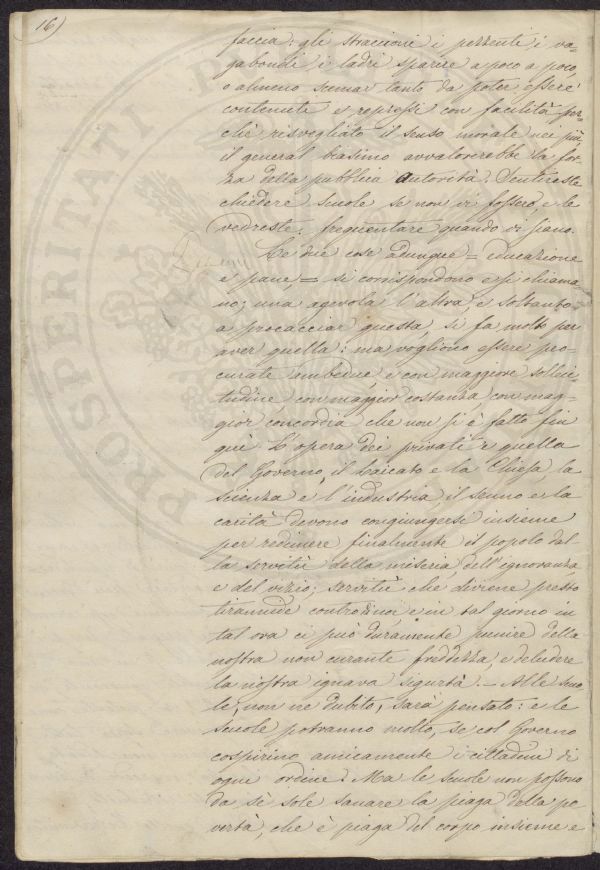 16)
faccia: gli straccioni i pezzenti, i va=
gabondi, i ladri sparire a poco a poco,
o almeno scemar tanto da poter essere
contenuti e repressi con facilità per=
chè risvegliato il senso morale nei più
il general biasimo avvalorerebbe la for=
za della pubblica autorità. Sentireste
chiedere scuole se non vi fossero, e le
vedreste frequentare quando vi siano.
Le due cose adunque = educazione
e pane, = si corrispondono e si chiama
no; una agevola l'altra, e soltanto
a procacciar questa, si fa molto per
aver quella: ma vogliono essere pro=
curate ambedue e con maggiore solleci=
tudine con maggior costanza con mag=
gior concordia che non si è fatto fin
quì L'opera dei privati e quella
del Governo, il Laicato e la Chiesa, la
scienza e l'industria il senno e la
carità devono congiungersi insieme
per redimere finalmente il popolo dal
la servitù della miseria, dell'ignoranza
e del vizio; servitù che diviene presto
tirannide contro noi e in tal giorno in
tal ora ci può duramente punire della
nostra non curante freddezza, e deludere
la nostra ignava sigurtà. = Alle scuo
le, non ne dubito, sarà pensato: e le
scuole potranno molto, se col Governo
cospirino amicamente i cittadini di
ogni ordine. Ma le scuole non possono
da sè sole sanare la piaga della po
vertà, che è piaga del corpo insieme e
PROSPERITATI PU